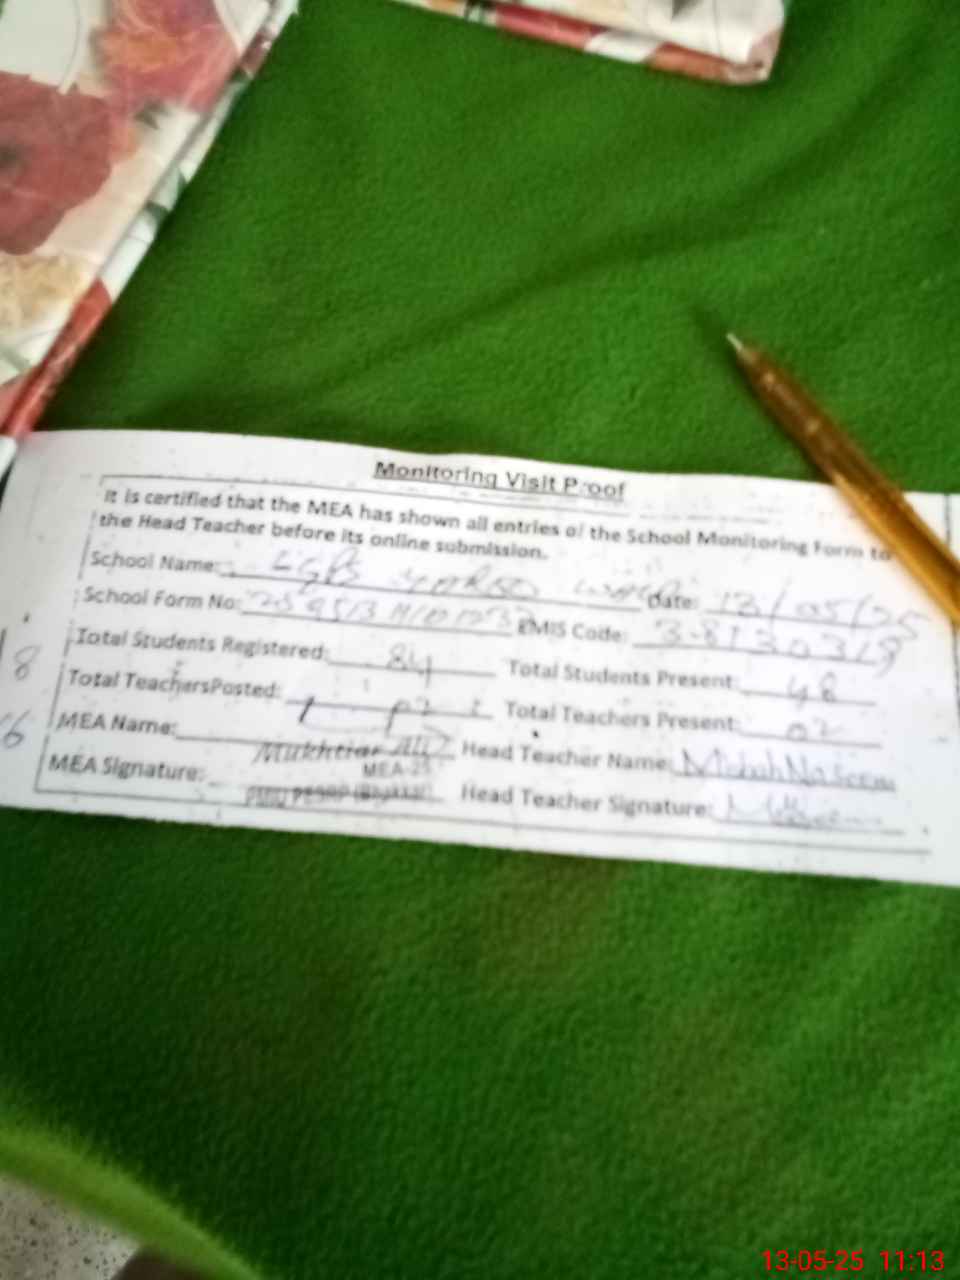 Monitoring Visit Proof
It is certified that the MEA has shown all entries of the School Monitoring Form to
the Head Teacher before its online submission.
School Name: Date: 13/05/25
School Form No: EMIS Code: 38130319
Total Students Registered: 84 Total Students Present: 48
Total TeachersPosted: 02 Total Teachers Present: 02
MEA Name: Mukhtiar Ali Head Teacher Name: Misbah Naseem
MEA-25
MEA Signature: Head Teacher Signature:
8
6
13-05-25 11:13